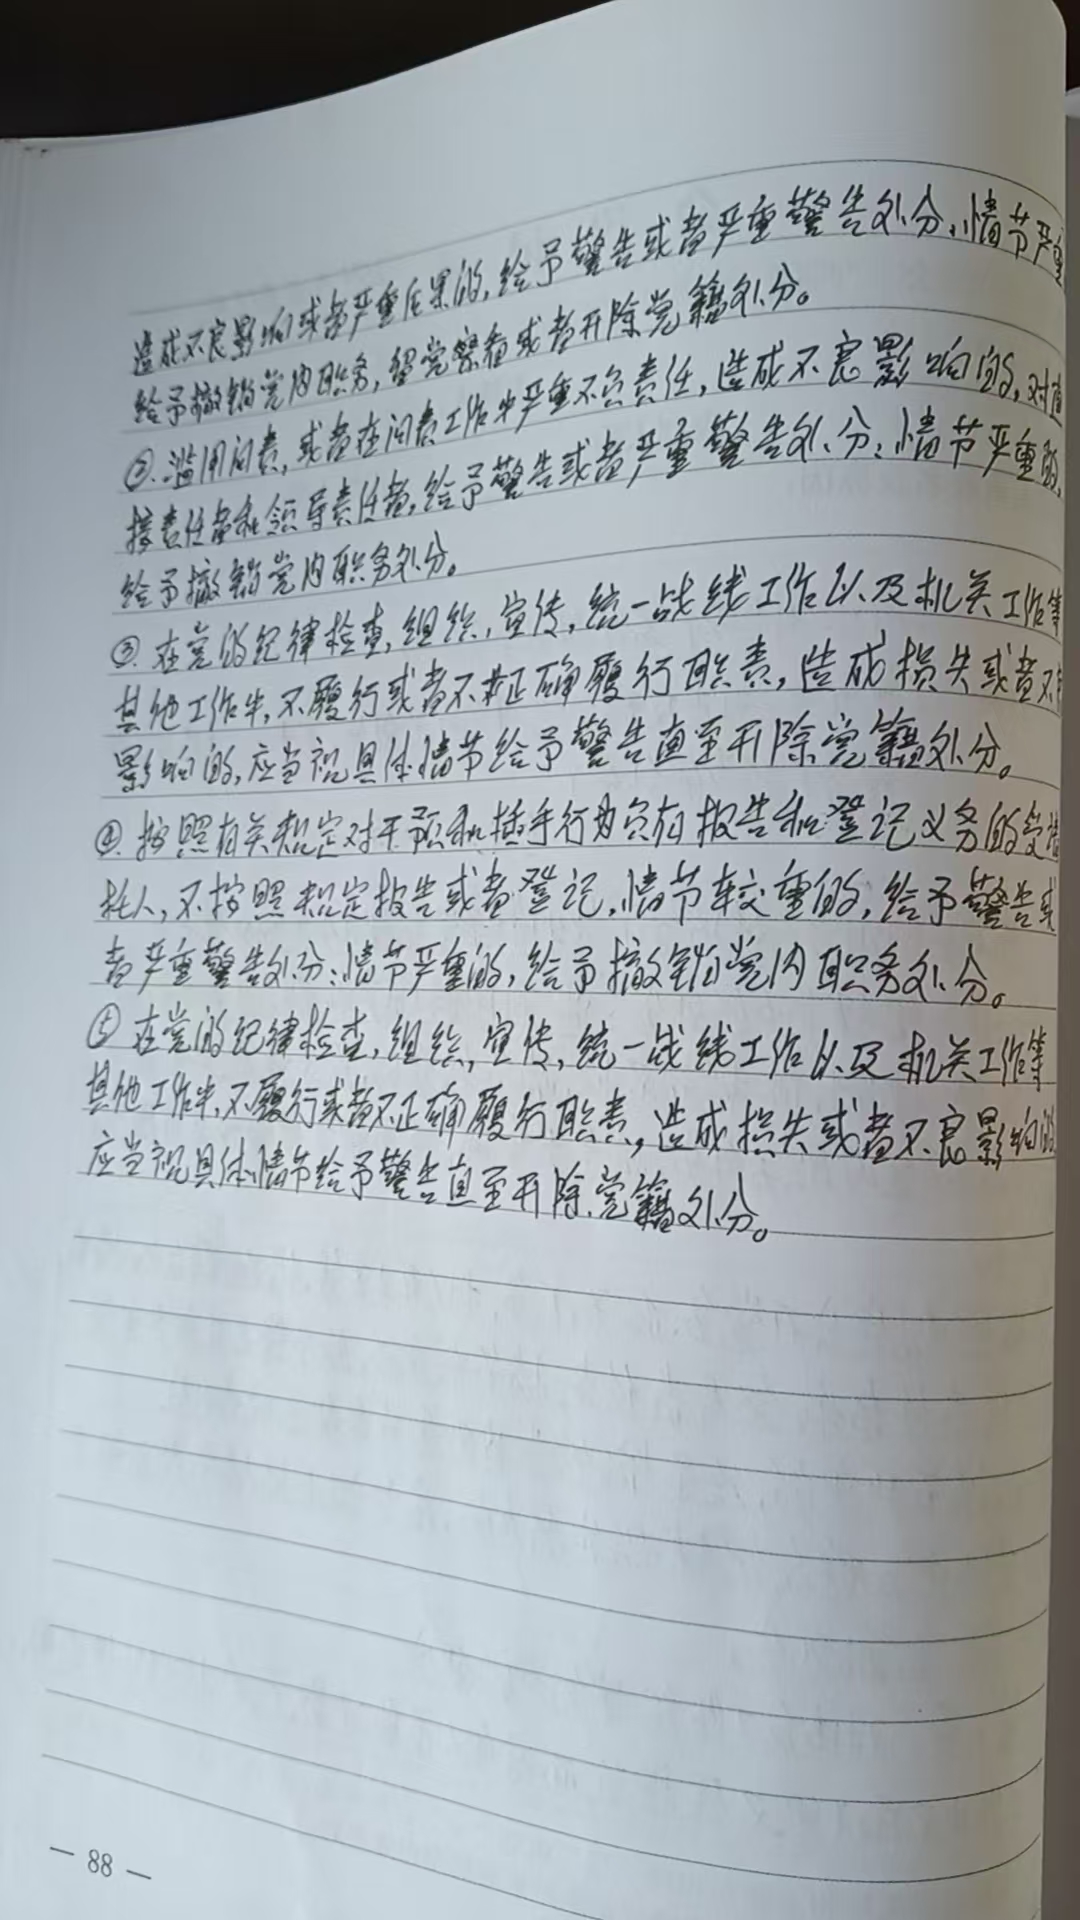 造成不良影响或者严重后果的,给予警告或者严重警告处分;情节严重
给予撤销党内职务,留党察看或者开除党籍处分。
②.滥用问责,或者在问责工作中严重不负责任,造成不良影响的,对直
接责任者和领导责任者,给予警告或者严重警告处分;情节严重的,
给予撤销党内职务处分。
③.在党的纪律检查,组织,宣传,统一战线工作以及机关工作等
其他工作中,不履行或者不正确履行职责,造成损失或者不
影响的,应当视具体情节给予警告直至开除党籍处分。
④.按照有关规定对干预和插手行为负有报告和登记义务的受请
托人,不按照规定报告或者登记,情节较重的,给予警告或
者严重警告处分;情节严重的,给予撤销党内职务处分。
⑤在党的纪律检查,组织,宣传,统一战线工作以及机关工作等
其他工作中,不履行或者不正确履行职责,造成损失或者不良影响的
应当视具体情节给予警告直至开除党籍处分。
— 88 —